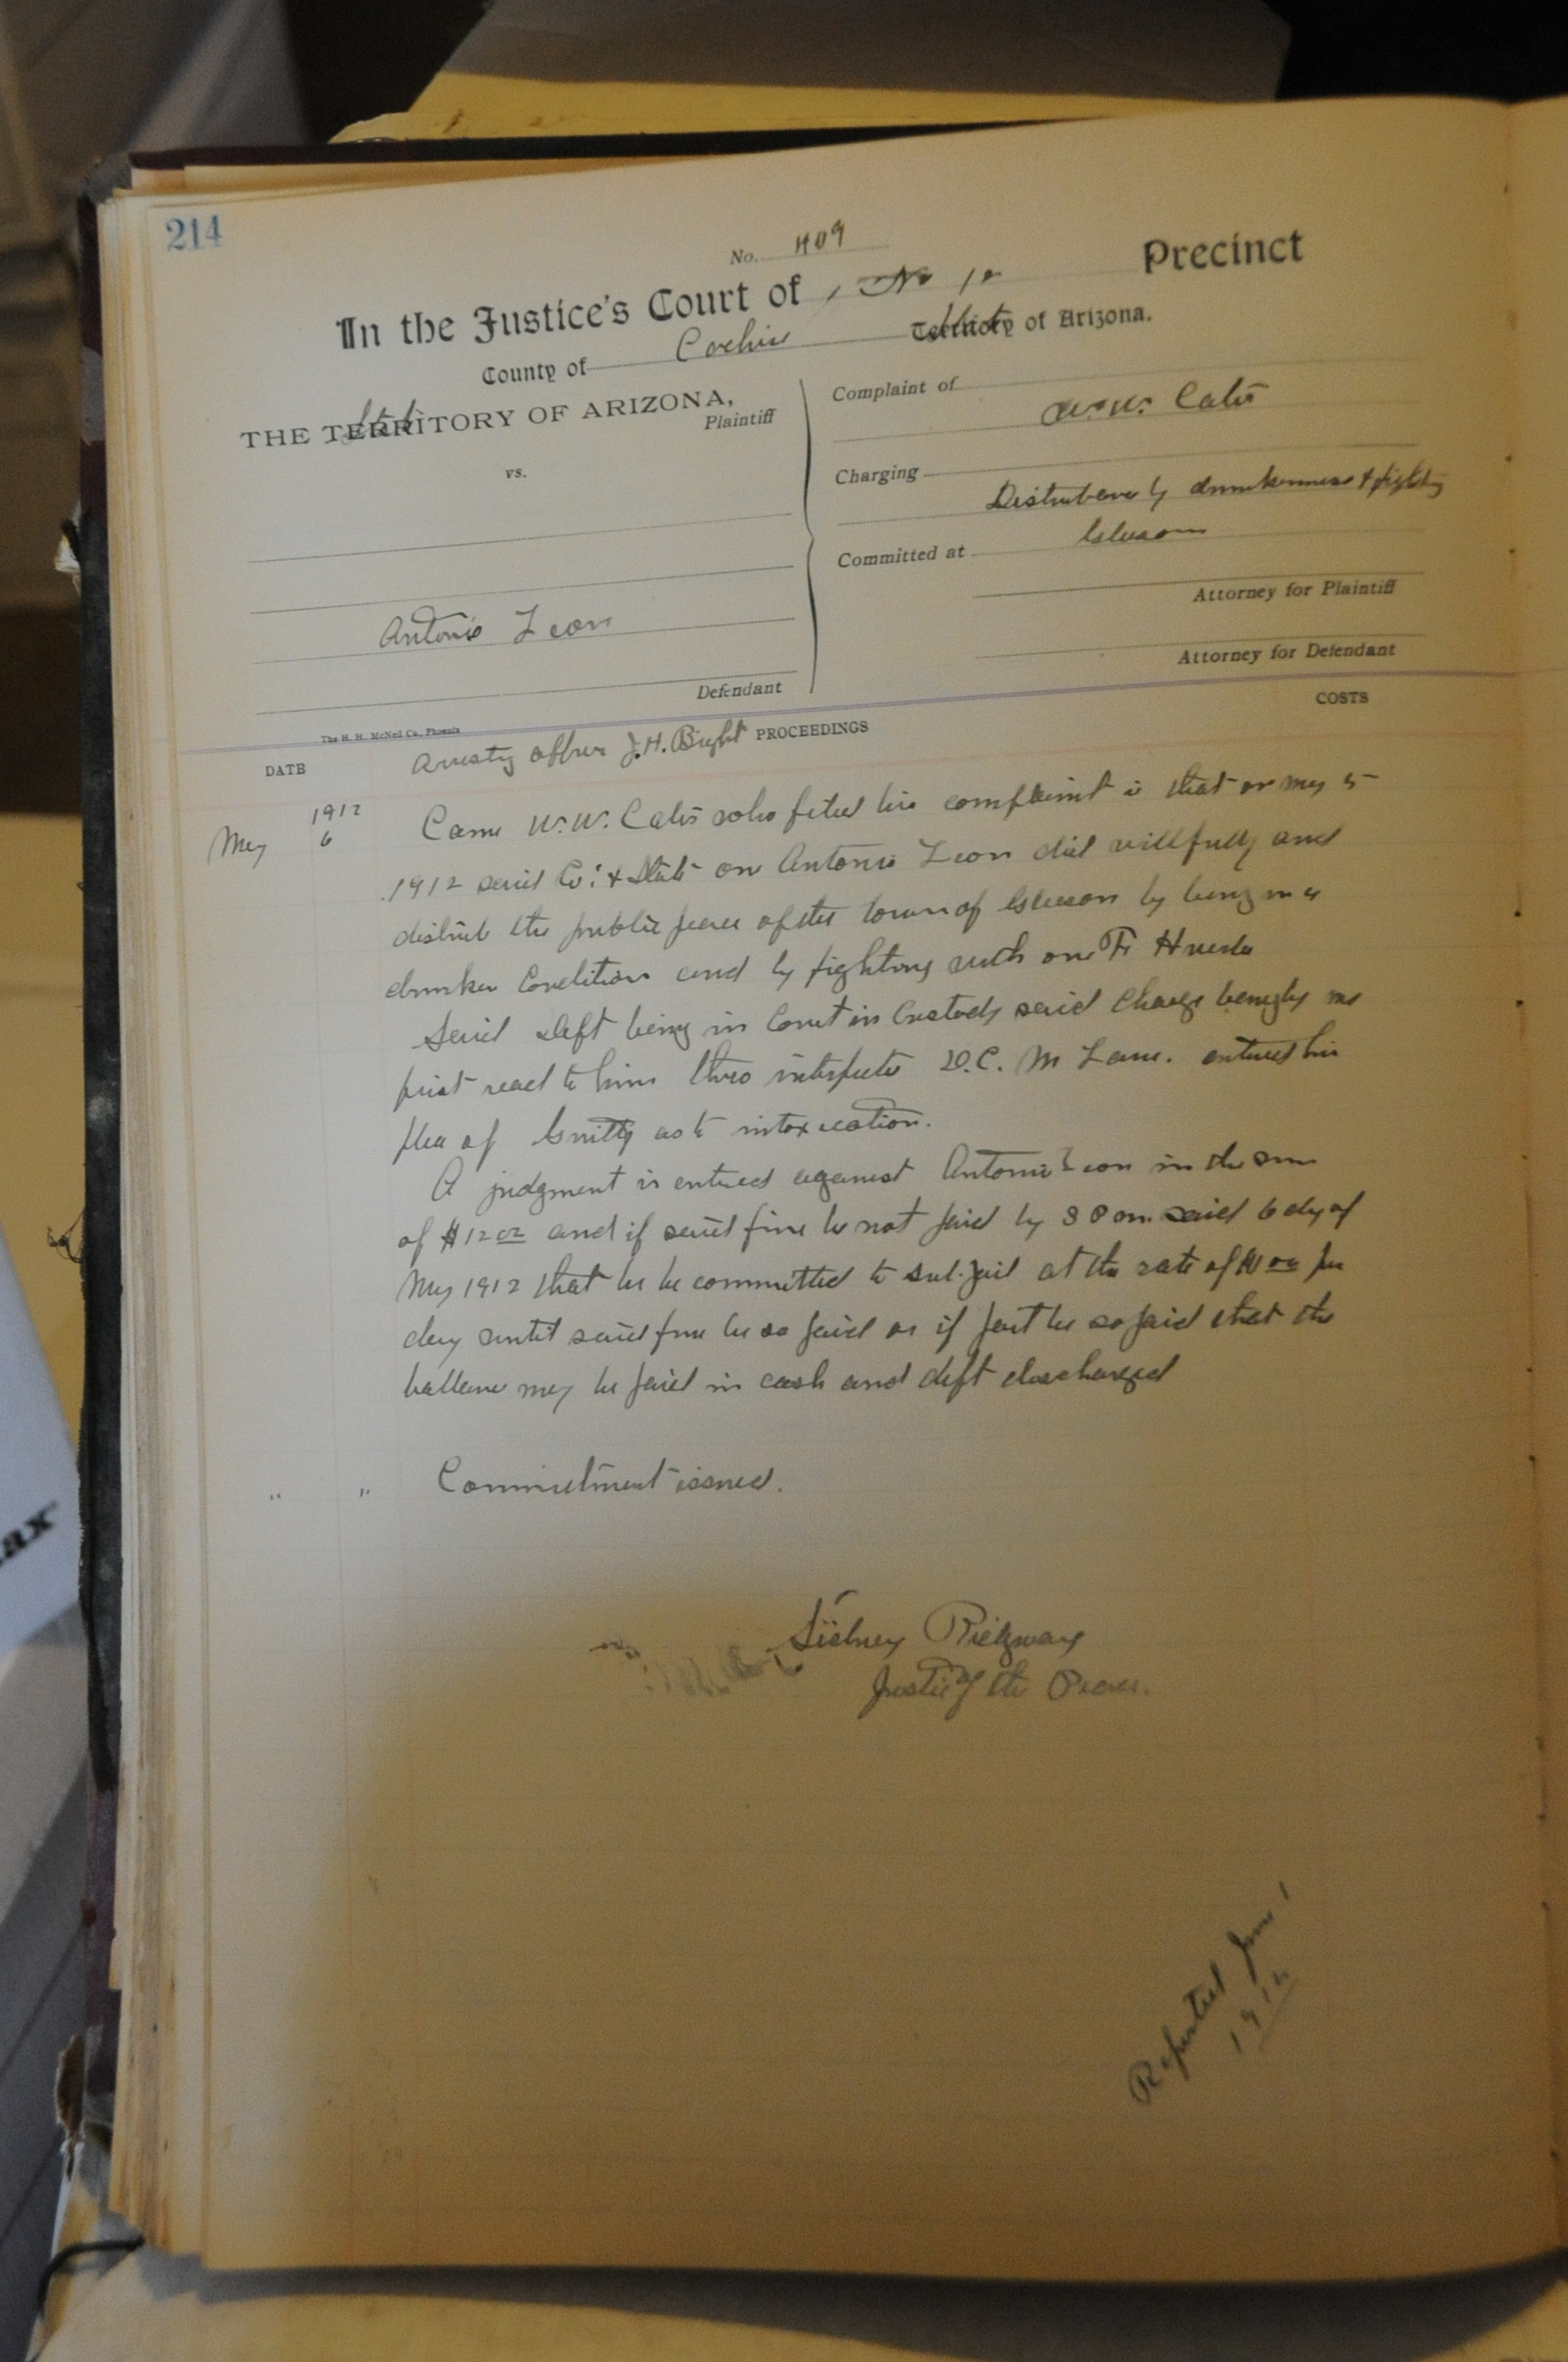 214
No. 409
In the Justice's Court of No 12 Precinct
County of Cochise State Territory of Arizona.
THE State TERRITORY OF ARIZONA,
Plaintiff
vs.
Antonio Leon
Defendant
Complaint of
W. W. Cates
Charging
Disturbance by drunkenness & fighting
Committed at Gleeson
Attorney for Plaintiff
Attorney for Defendant
COSTS
The H. H. McNeil Co., Phoenix
DATE
Arresty officer J. H. Bright PROCEEDINGS
1912
May 6
Came W. W. Cates who filed his complaint that on May 5
1912 said Co. & State on Antonio Leon did willfully and
distrub the public peace of the town of Gleeson by being in a
drunken condition and by fighting with one
Said Deft being in Court in Custody said Charge being by me
first read to him thro D. C. M Lane. entered his
plea of Guilty as to intoxication.
A judgment is entered against Antonio Leon in the sum
of $12 00 and if said fine be not paid by 8 P m said 6 day of
May 1912 that he be committed to sub. jail at the rate of $1 00 per
day until said fine be so paid or if part be so paid that the
ballance may be paid in cash and deft discharged
" " Commitment issued.
Sidney Ridgway
Justice of the Peace.
Reported June 1
1912